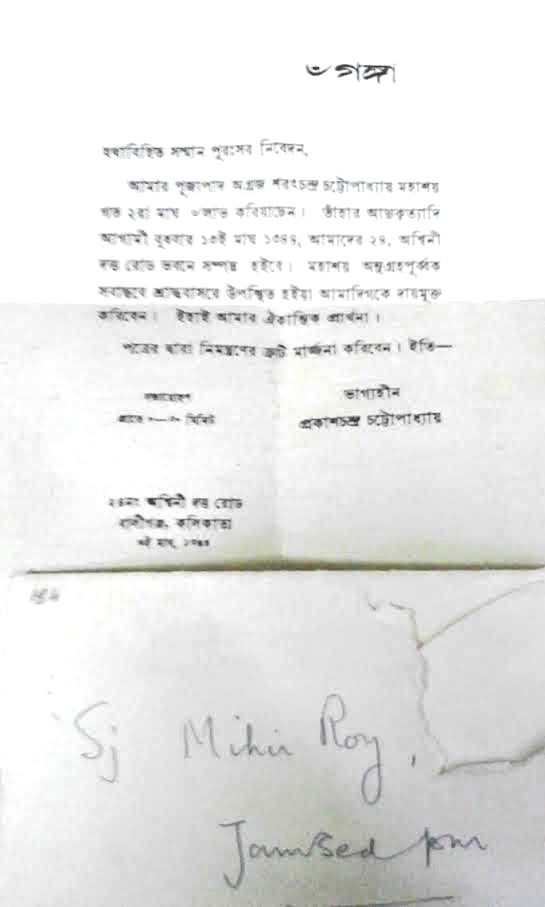 ওঁ গঙ্গা
যথাবিহিত সম্মান পুরঃসর নিবেদন,
আমার পূজ্যপাদ অগ্রজ শরৎচন্দ্র চট্টোপাধ্যায় মহাশয়
গত ২রা মাঘ ৺লাভ করিয়াছেন। তাঁহার আদ্যকৃত্যাদি
আগামী বুধবার ১৩ই মাঘ ১৩৪৪, আমাদের ২৪, অশ্বিনী
দত্ত রোড ভবনে সম্পন্ন হইবে। মহাশয় অনুগ্রহপূর্ব্বক
সবান্ধবে শ্রাদ্ধবাসরে উপস্থিত হইয়া আমাদিগকে দায়মুক্ত
করিবেন। ইহাই আমার ঐকান্তিক প্রার্থনা।
পত্রের দ্বারা নিমন্ত্রণের ত্রুটি মার্জ্জনা করিবেন। ইতি—
ভাগ্যহীন
প্রকাশচন্দ্র চট্টোপাধ্যায়
মিনিট
২৪নং অশ্বিনী দত্ত রোড
বালীগঞ্জ, কলিকাতা
মাঘ, ১৩৪৪
Sj Mihir Roy,
Jamsedpur